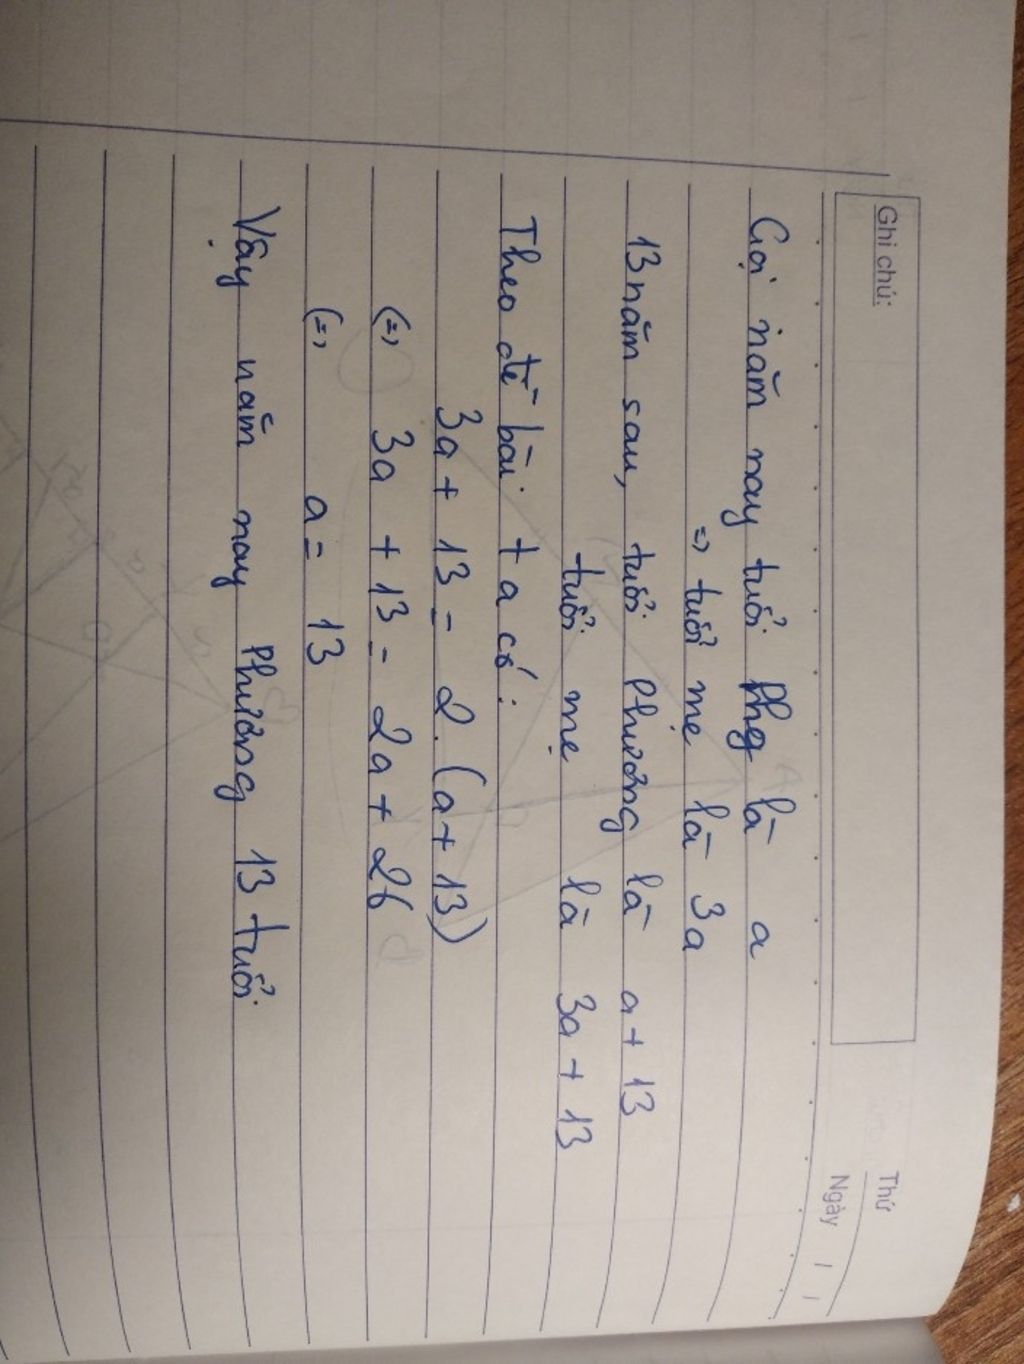 Ghi chú:
Thứ
Ngày / /
Gọi năm nay tuổi Phg là a
=> tuổi mẹ là 3a
13 năm sau, tuổi Phương là a + 13
tuổi mẹ là 3a + 13
Theo đề bài ta có:
3a + 13 = 2. (a + 13)
(=) 3a + 13 = 2a + 26
(=) a = 13
Vậy năm nay Phương 13 tuổi